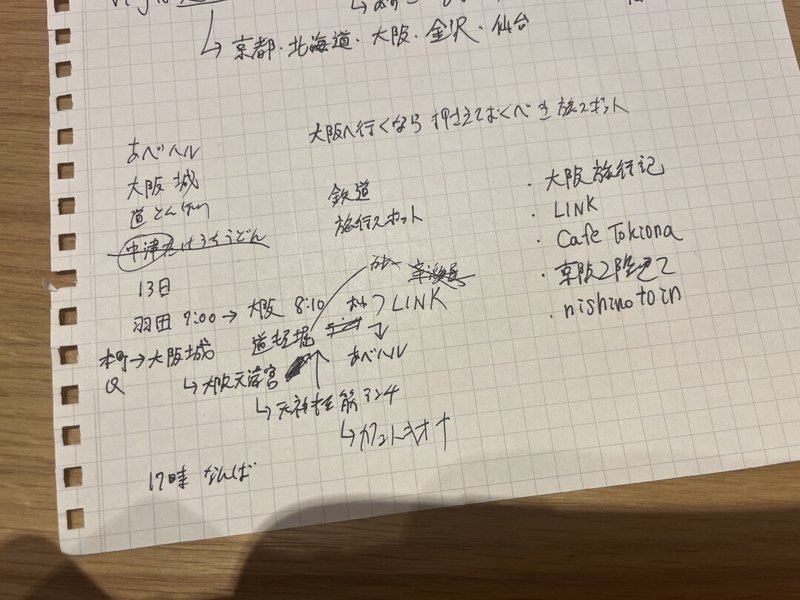 京都・北海道・大阪・金沢・仙台
大阪へ行くなら押さえておくべき旅スポット
あべハル
大阪城
道とん
鉄道
旅行スポット
・大阪旅行記
・LINK
・Cafe Tokiona
・京阪2階建て
・nishinotoin
中津たけうちうどん
13日
羽田 7:00→大阪 8:10
LINK
道頓堀
あべハル
本町→大阪城
↳大阪天満宮
↳天神橋筋
↳カフェトキオナ
17時 なんば